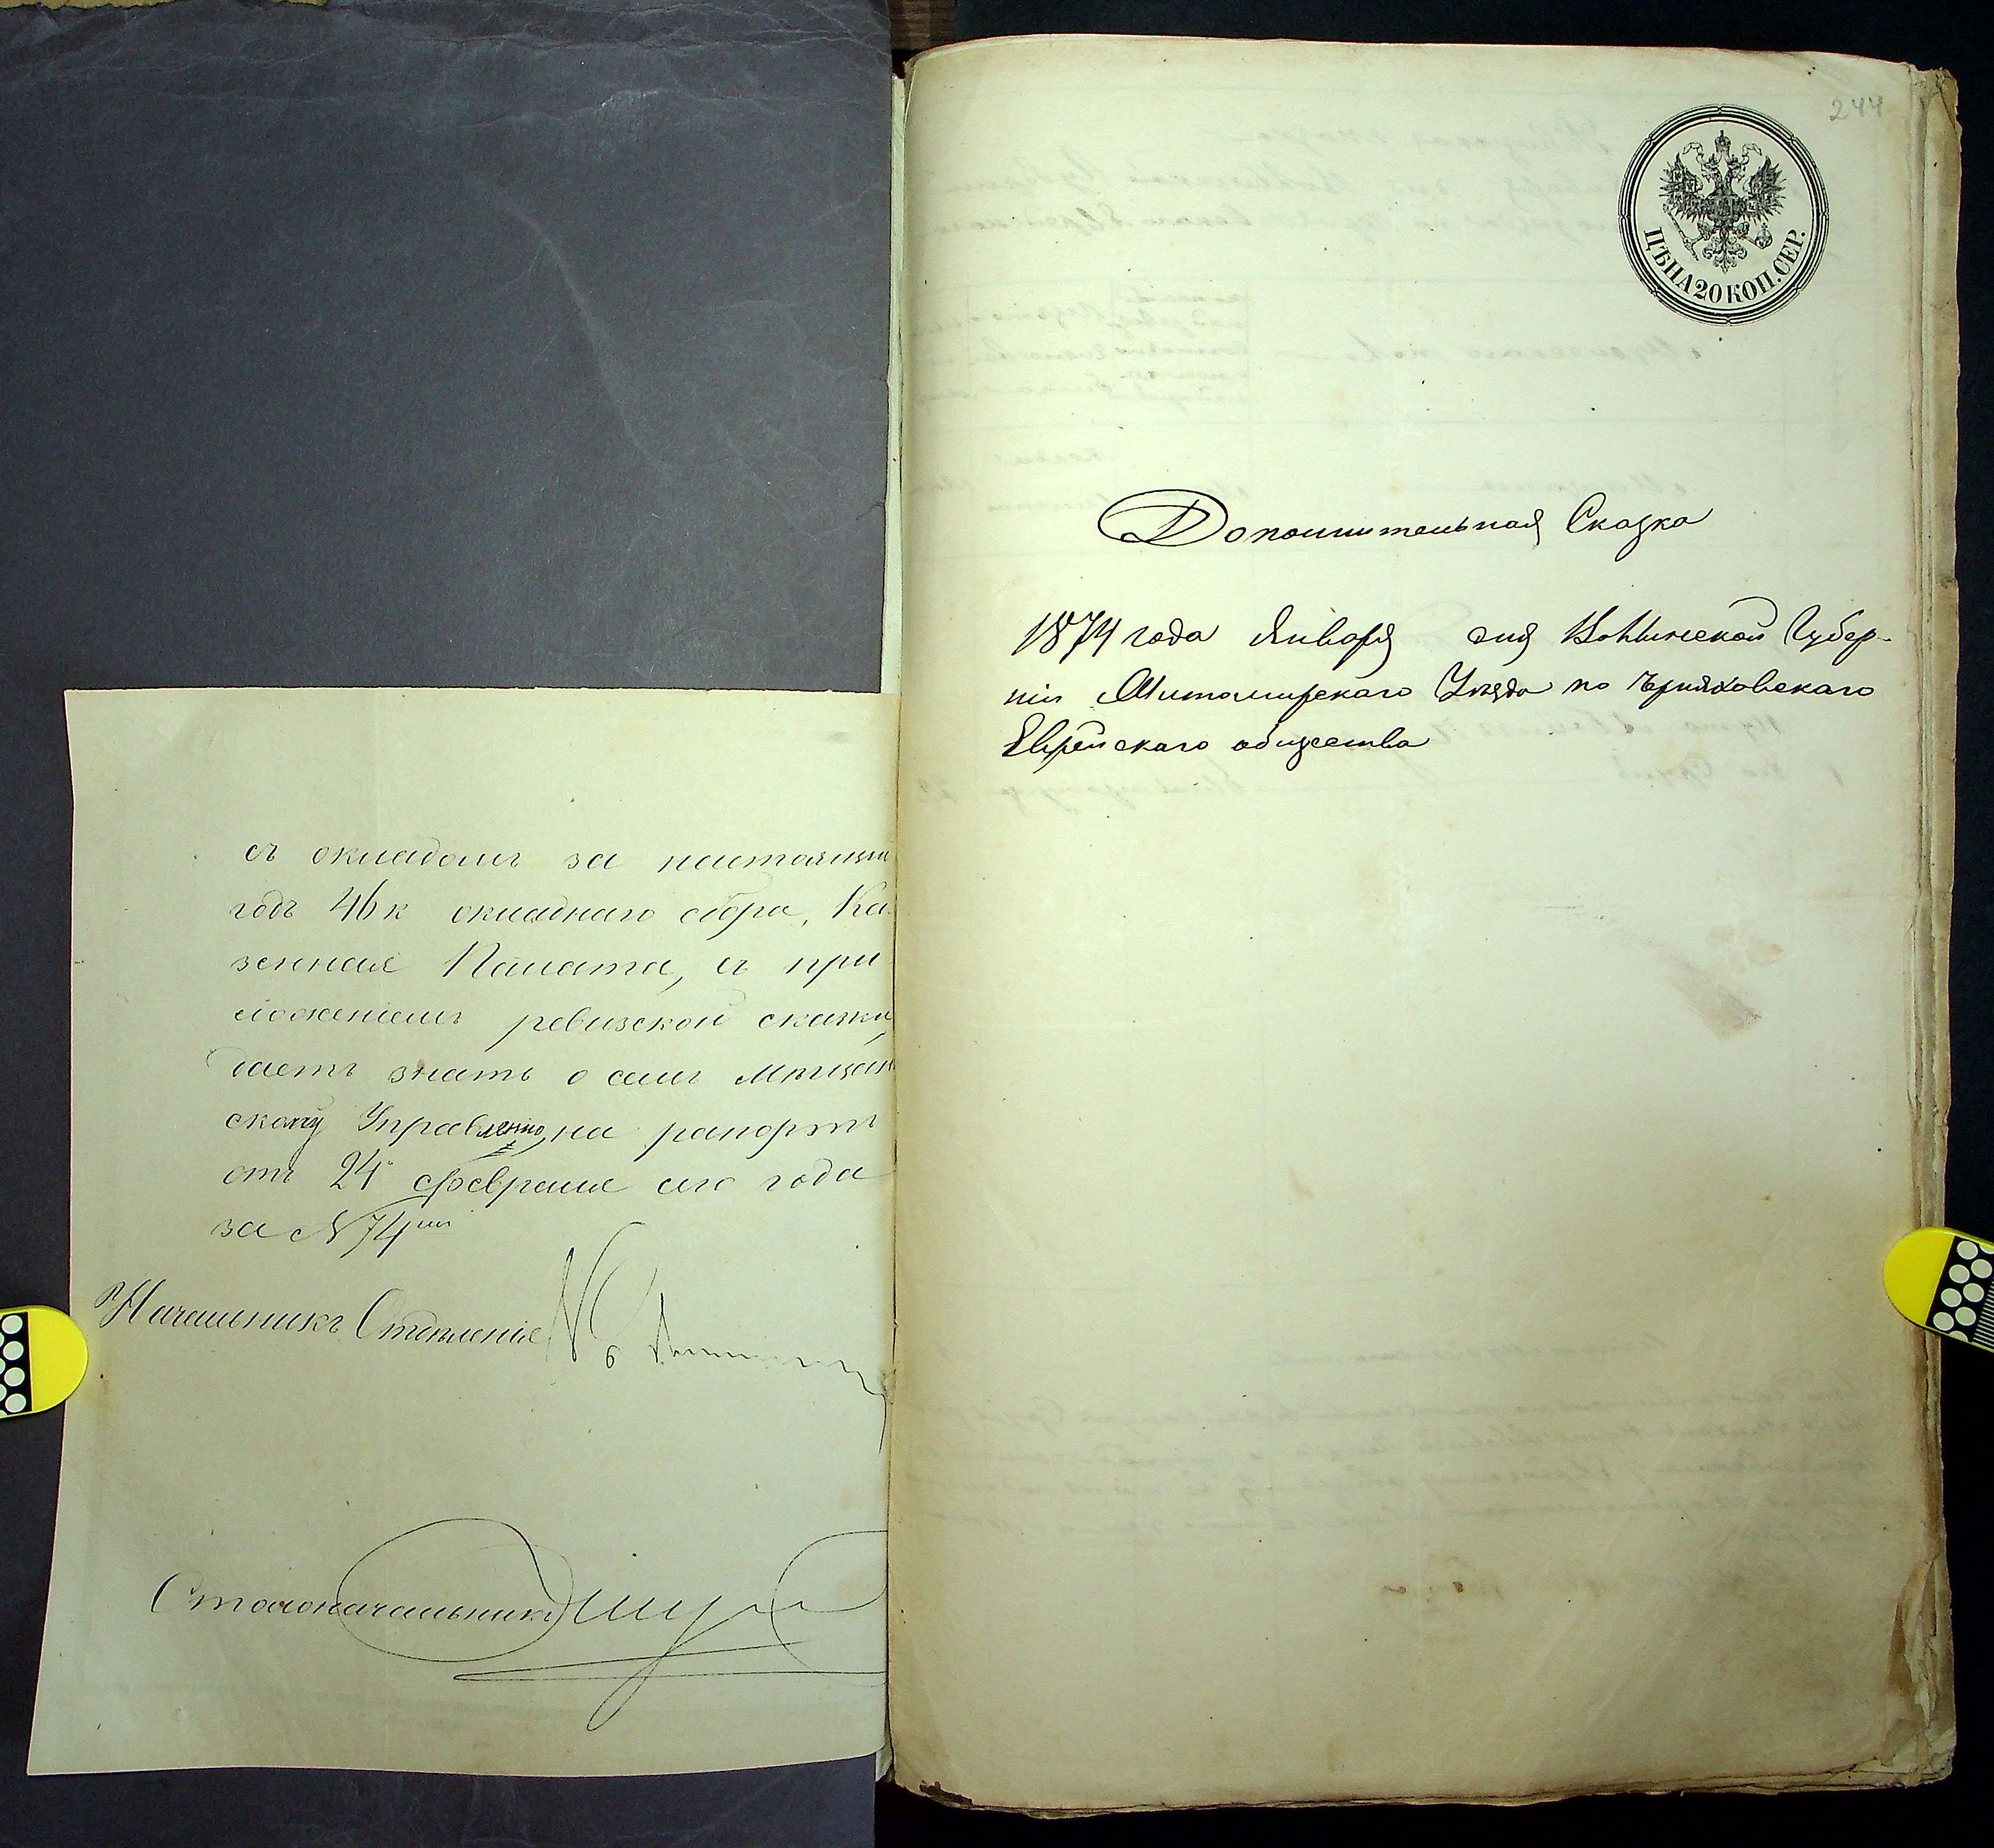 съ окладомъ за настоящій
годъ 46 к окладнаго сбора, Ка-
зенная Палата, съ при
ложеніемъ ревизской сказки,
даетъ знать о семъ Мѣщан
скому Управленію, на рапортъ
отъ 24 февраля сего года
за № 74мъ
Начальникъ Отдѣленія
Столоначальникъ
244
ЦѢНА 20 КОП. СЕР.
Дополнительная Сказка
1874 года Января дня Волынской Губер-
ніи Житомирскаго Уѣзда по Черняховскаго
Еврейскаго общества